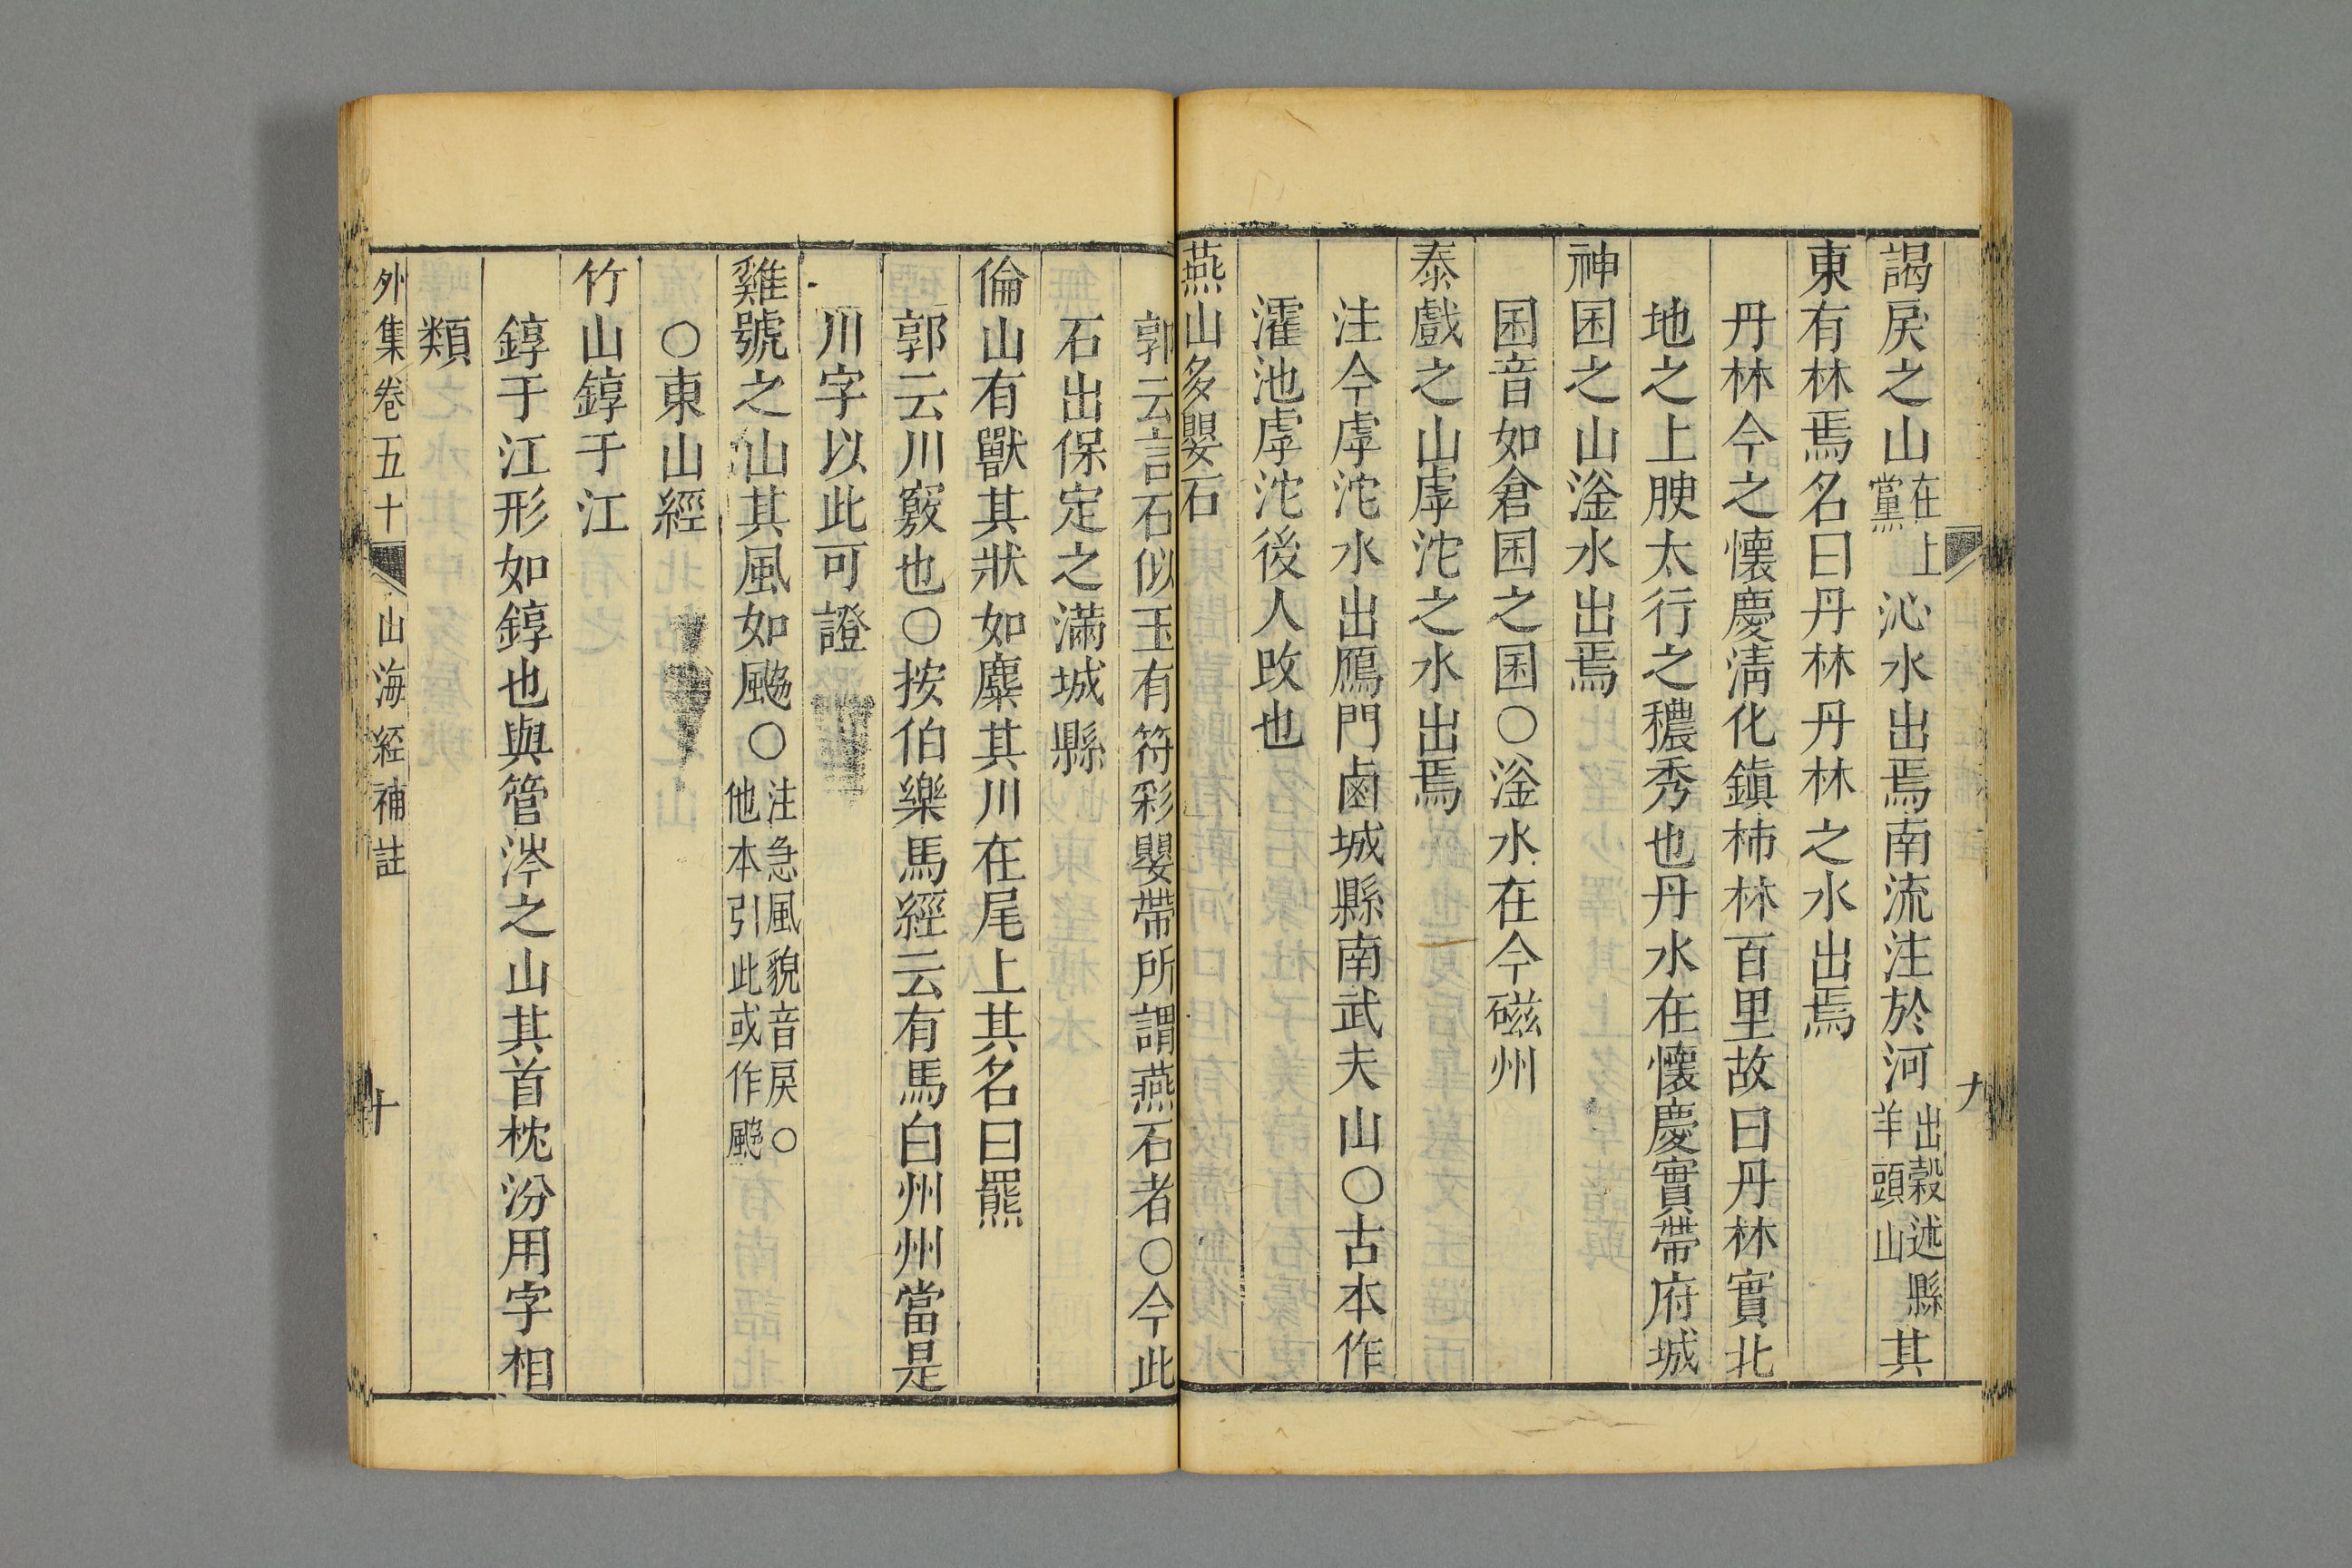 謁戾之山在上黨沁水出焉南流注於河出穀述縣羊頭山其
東有林焉名曰丹林丹林之水出焉
丹林今之懷慶淸化鎭柿林百里故曰丹林實北
地之上腴太行之穠秀也丹水在懷慶實帶府城
神囷之山滏水出焉
囷音如倉囷之囷○滏水在今磁州
泰戲之山虖沱之水出焉
注今虖沱水出鴈門鹵城縣南武夫山○古本作
濩池虖沱後人改也
燕山多嬰石
九
郭云言石似玉有符彩嬰帶所謂燕石者○今此
石出保定之滿城縣
倫山有獸其狀如麋其川在尾上其名曰羆
郭云川竅也○按伯樂馬經云有馬白州州當是
川字以此可證
雞號之山其風如颷○注急風貌音戾○他本引此或作颷
○東山經
竹山錞于江
錞于江形如錞也與管涔之山其首枕汾用字相
類
外集卷五十 山海經補註 十